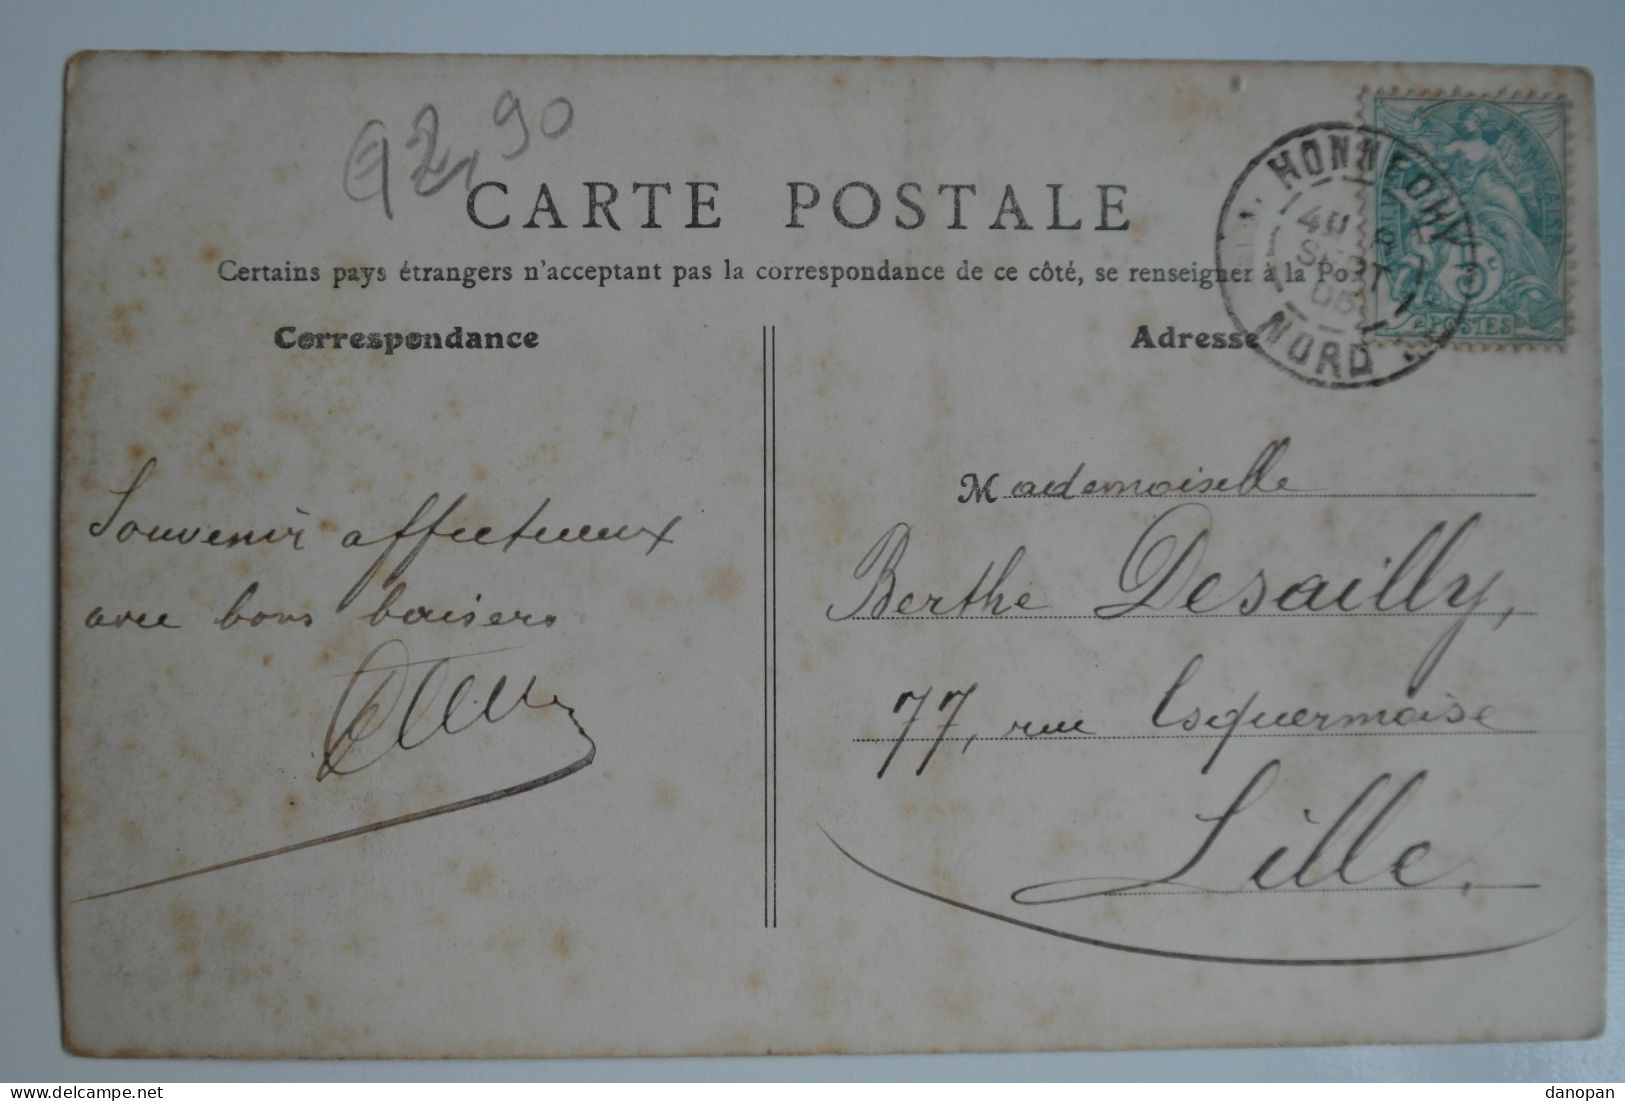 92,90
CARTE POSTALE
Certains pays étrangers n'acceptant pas la correspondance de ce côté, se renseigner à la Poste
Correspondance
Adresse
HONNECHY
SEPT
NORD
5c
POSTES
Souvenir affectueux
avec bons baisers
Mademoiselle
Berthe Desailly,
77, rue Esquermoise
Lille.
delcampe.net
danopan